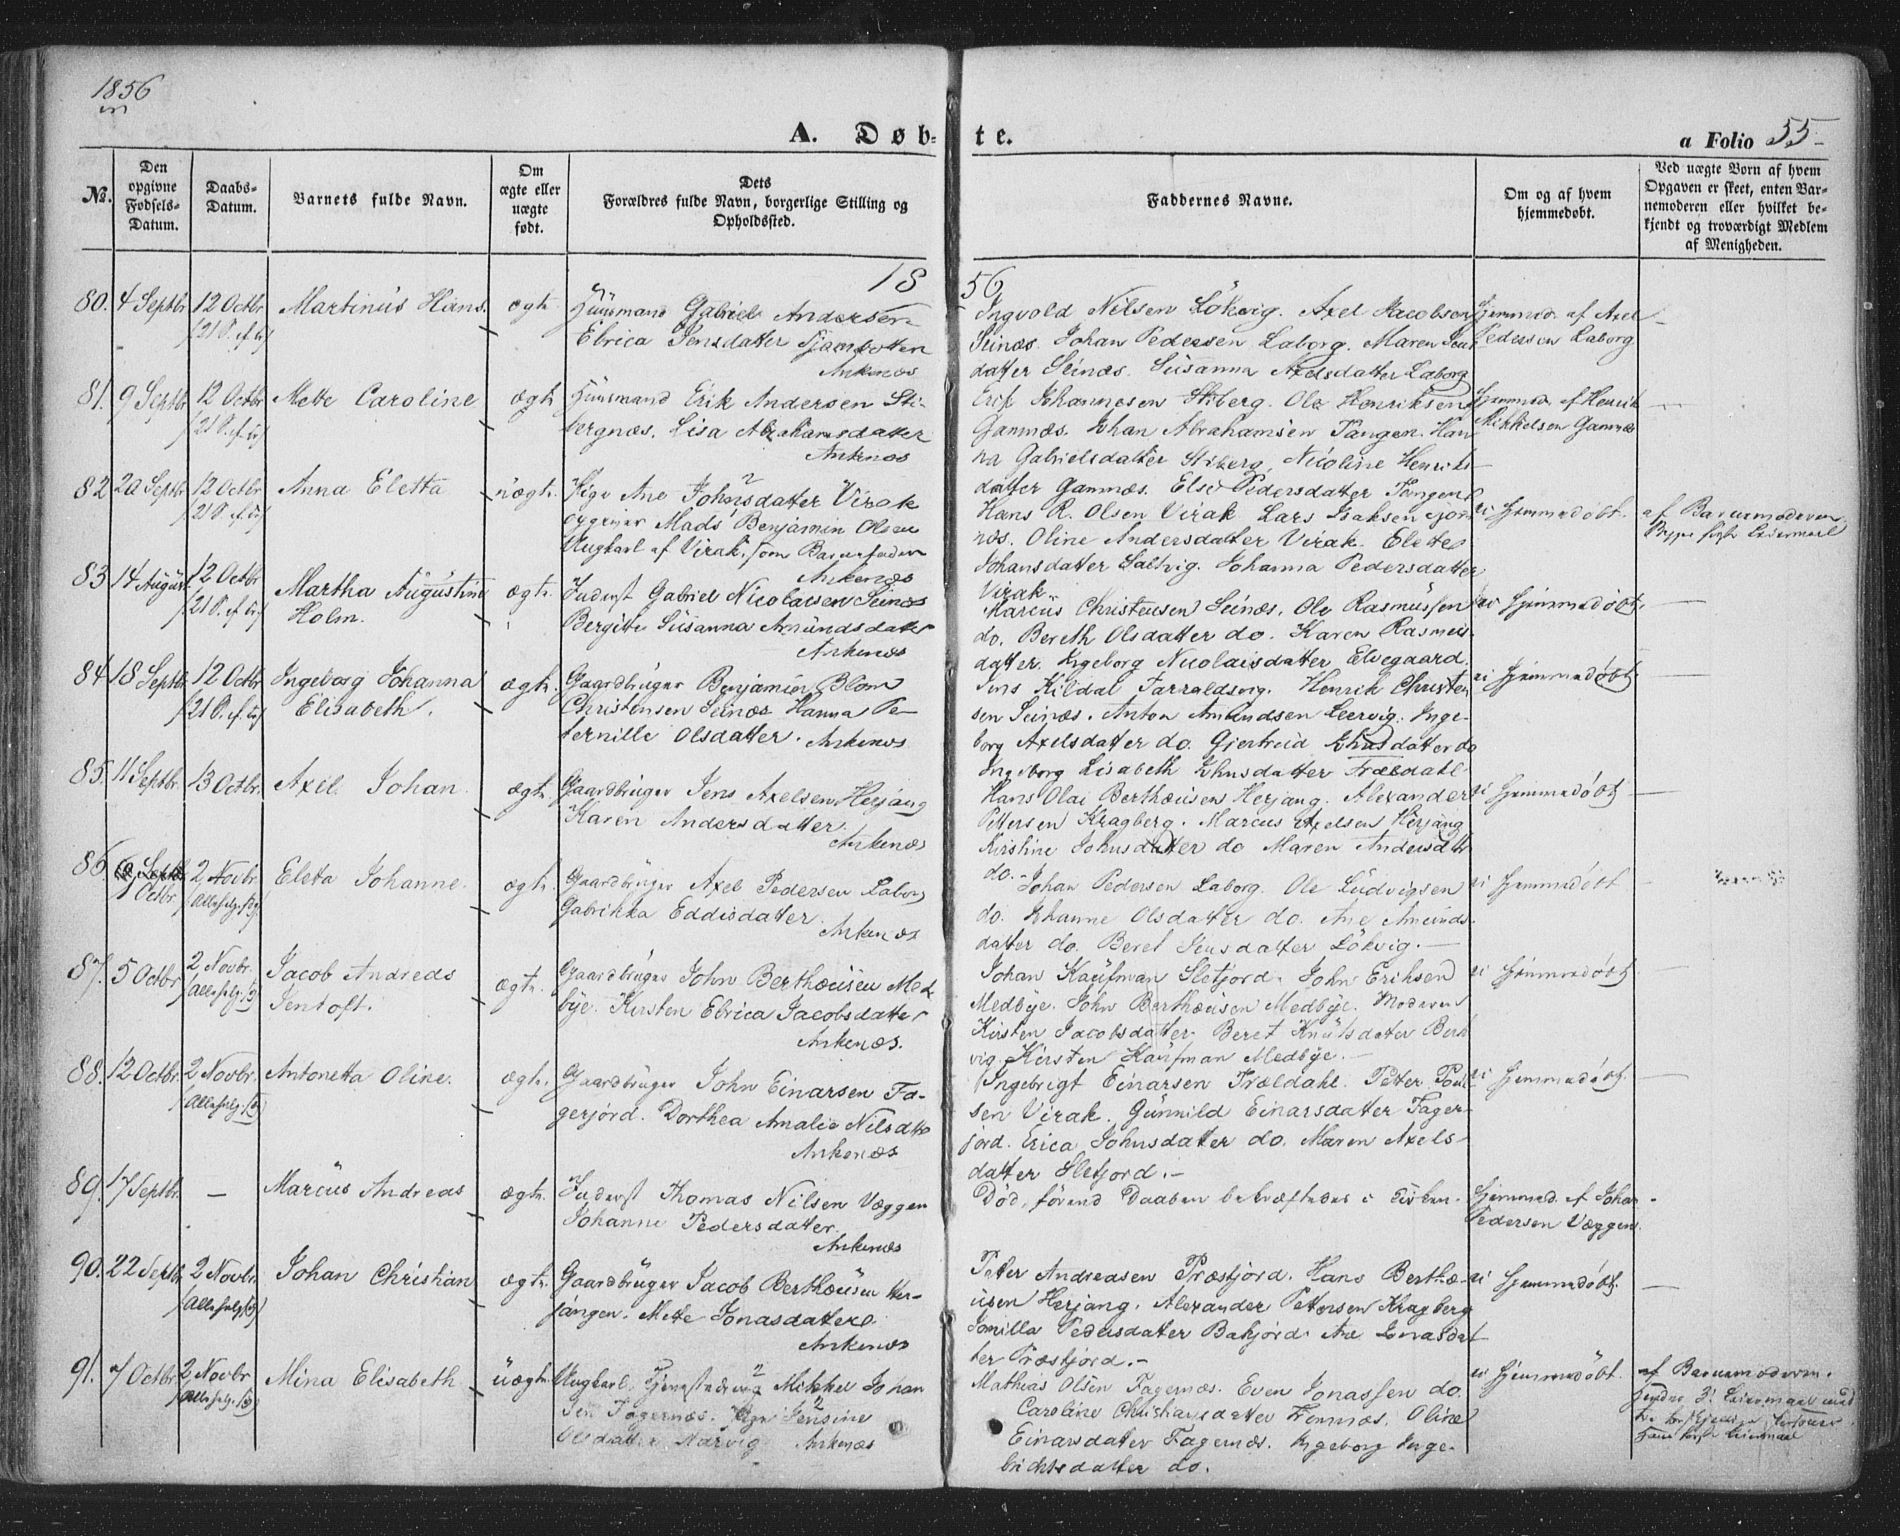 1856
A. Døb-
te.
a Folio 55
No.
Den opgivne Fødsels-Datum.
Daabs-Datum.
Barnets fulde Navn.
Om ægte eller uægte født.
Dets Forældres fulde Navn, borgerlige Stilling og Opholdssted.
Faddernes Navne.
Om og af hvem hjemmedøbt.
Ved uægte Børn af hvem Opgaven er skeet, enten Barnemoderen eller hvilket bekjendt og troværdigt Medlem af Menigheden.
18
56
80. 4 Septbr 12 Octbr Martinus Hans. ægte Huusmand Gabriel Andersen
/21 S. ef. tr/ Elrica Jensdatter
Ankenæs
Ingvold Nilsen Lökvig. Axel Jacobsen
Seinæs. Johan Pedersen Laborg. Maren Jens
datter Seinæs. Susanna Axelsdatter Laborg
Hjemmed. af Axel
Pedersen Laborg
81. 9 Septbr 12 Octbr Mette Caroline ægte Huusmand Erik Andersen Sti-
/21 S. ef. tr/ bergnæs. Lisa Abrahamsdatter
Ankenæs
Erik Johannesen Stiberg. Ole Henriksen
Gamnæs. Johan Abrahamsen Tangen. Han
na Gabrielsdatter Stiberg, Nicoline Henriks
datter Gamnæs. Else Pedersdatter Tangen
Hjemmed. af Henrik
Mikkelsen Gamnæs
82 20 Septbr 12 Octbr Anna Eletta uægte Pige Ane Johnsdatter Virak
/21 S. ef. tr/ opgiver Mads Benjamin Olsen
Ungkarl af Virak, som Barnefader
Ankenæs
Hans R. Olsen Virak Lars Isaksen
næs. Oline Andersdatter Virak. Elette
Johansdatter Saltvig. Johanna Pedersdatter
Virak
ei Hjemmedøbt.
af Barnemoderen.
83 14 August 12 Octbr Martha Augustine ægte Inderst Gabriel Nicolaisen Seinæs
/21 S. ef. tr/ Holm. Bergitte Susanna Amundsdatter
Ankenæs
Marcus Christensen Seinæs. Ole Rasmussen
do. Bereth Olsdatter do. Karen Rasmus
datter. Ingeborg Nicolaisdatter Elvegaard.
ei Hjemmedøbt.
84 18 Septbr 12 Octbr Ingeborg Johanna ægte Gaardbruger Benjamin Blom
/21 S. ef. tr/ Elisabeth. Christensen Seinæs Hanna Pe-
ternille Olsdatter. Ankenæs
Jens Kildal Farraldsvig. Henrik Christen
sen Seinæs. Anton Amundsen Leervig. Inge-
borg Axelsdatter do. Gjertrud Johnsdatter do
Ingeborg Lisabeth Johnsdatter Trældahl
ei Hjemmedøbt
85. 11 Septbr. 13 Octbr. Axel Johan. ægte Gaardbruger Jens Axelsen Herjang
Karen Andersdatter.
Ankenæs
Hans Olai Berthæusen Herjang. Alexander
Pettersen Kragberg. Marcus Axelsen Herjang
Kirstine Johnsdatter do Maren Andersdatt
do.
ei Hjemmedøbt
86 9 Octbr 2 Novbr. Eleta Johanne. ægte Gaardbruger Axel Pedersen Laborg
/Allehelg./ Gabrikka Eddisdatter.
Ankenæs
Johan Pedersen Laborg. Ole Ludvigsen
do. Johanne Olsdatter do. Ane Amunds-
datter do. Beret Jensdatter Lökvig.
ei Hjemmedøbt
87. 5 Octbr 2 Novbr. Jacob Andreas ægte. Gaardbruger John Berthæusen Med
/Allehelg./ Jentoft. bye. Kirsten Elrica Jacobsdatter
Ankenæs.
Johan Kaufman Sletjord. John Eriksen
Medbye. John Berthæusen Medbye. Moderen
Kirsten Jacobsdatter. Beret Knutsdatter Ber
vig. Kirsten Kaufman Medbye.
ei Hjemmedøbt
88. 12 Octbr. 2 Novbr. Antonetta Oline. ægte. Gaardbruger John Einarsen Fa-
/Allehelg./ gerjord. Dorthea Amalia Nilsdtr
Ankenæs
Ingebrigt Einarsen Trældahl. Petter Poul
sen Virak. Gunnild Einarsdatter Fager-
jord. Erica Johnsdatter do. Maren Axels-
datter Sletjord.
ei Hjemmedøbt.
89. 17 Septbr. — Marcus Andreas ægte. Inderst Thomas Nilsen Væggen
Johanne Pedersdatter.
Ankenæs
Død, förend Daaben bekræftedes i Kirken.
Hjemmed. af Johan
Pedersen Væggen.
90. 22 Septbr 2 Novbr. Johan Christian ægte. Gaardbruger Jacob Berthæusen Her-
/Allehelg./ jangen. Mette Jonasdatter.
Ankenæs
Peter Andreasen Præstjord. Hans Berthæ-
usen Herjang. Alexander Pettersen Kragberg
Jomilla Pedersdatter Bakjord. Ane Jonasdat
ter Præstjord.
ei Hjemmedøbt.
91. 7 Octbr 2 Novbr Mina Elisabeth uægte Ungkarl, Mikkel Johan
/Allehelg./ sen Fagernæs. Pige Jensine
Olsdatter Narvig. Ankenæs
Mathias Olsen Fagernæs. Even Jonassen do.
Caroline Christiansdatter Fremnæs. Oline
Einarsdatter Fagernæs. Ingeborg Inge-
brichtsdatter do.
ei Hjemmedøbt.
af Barnemoderen.